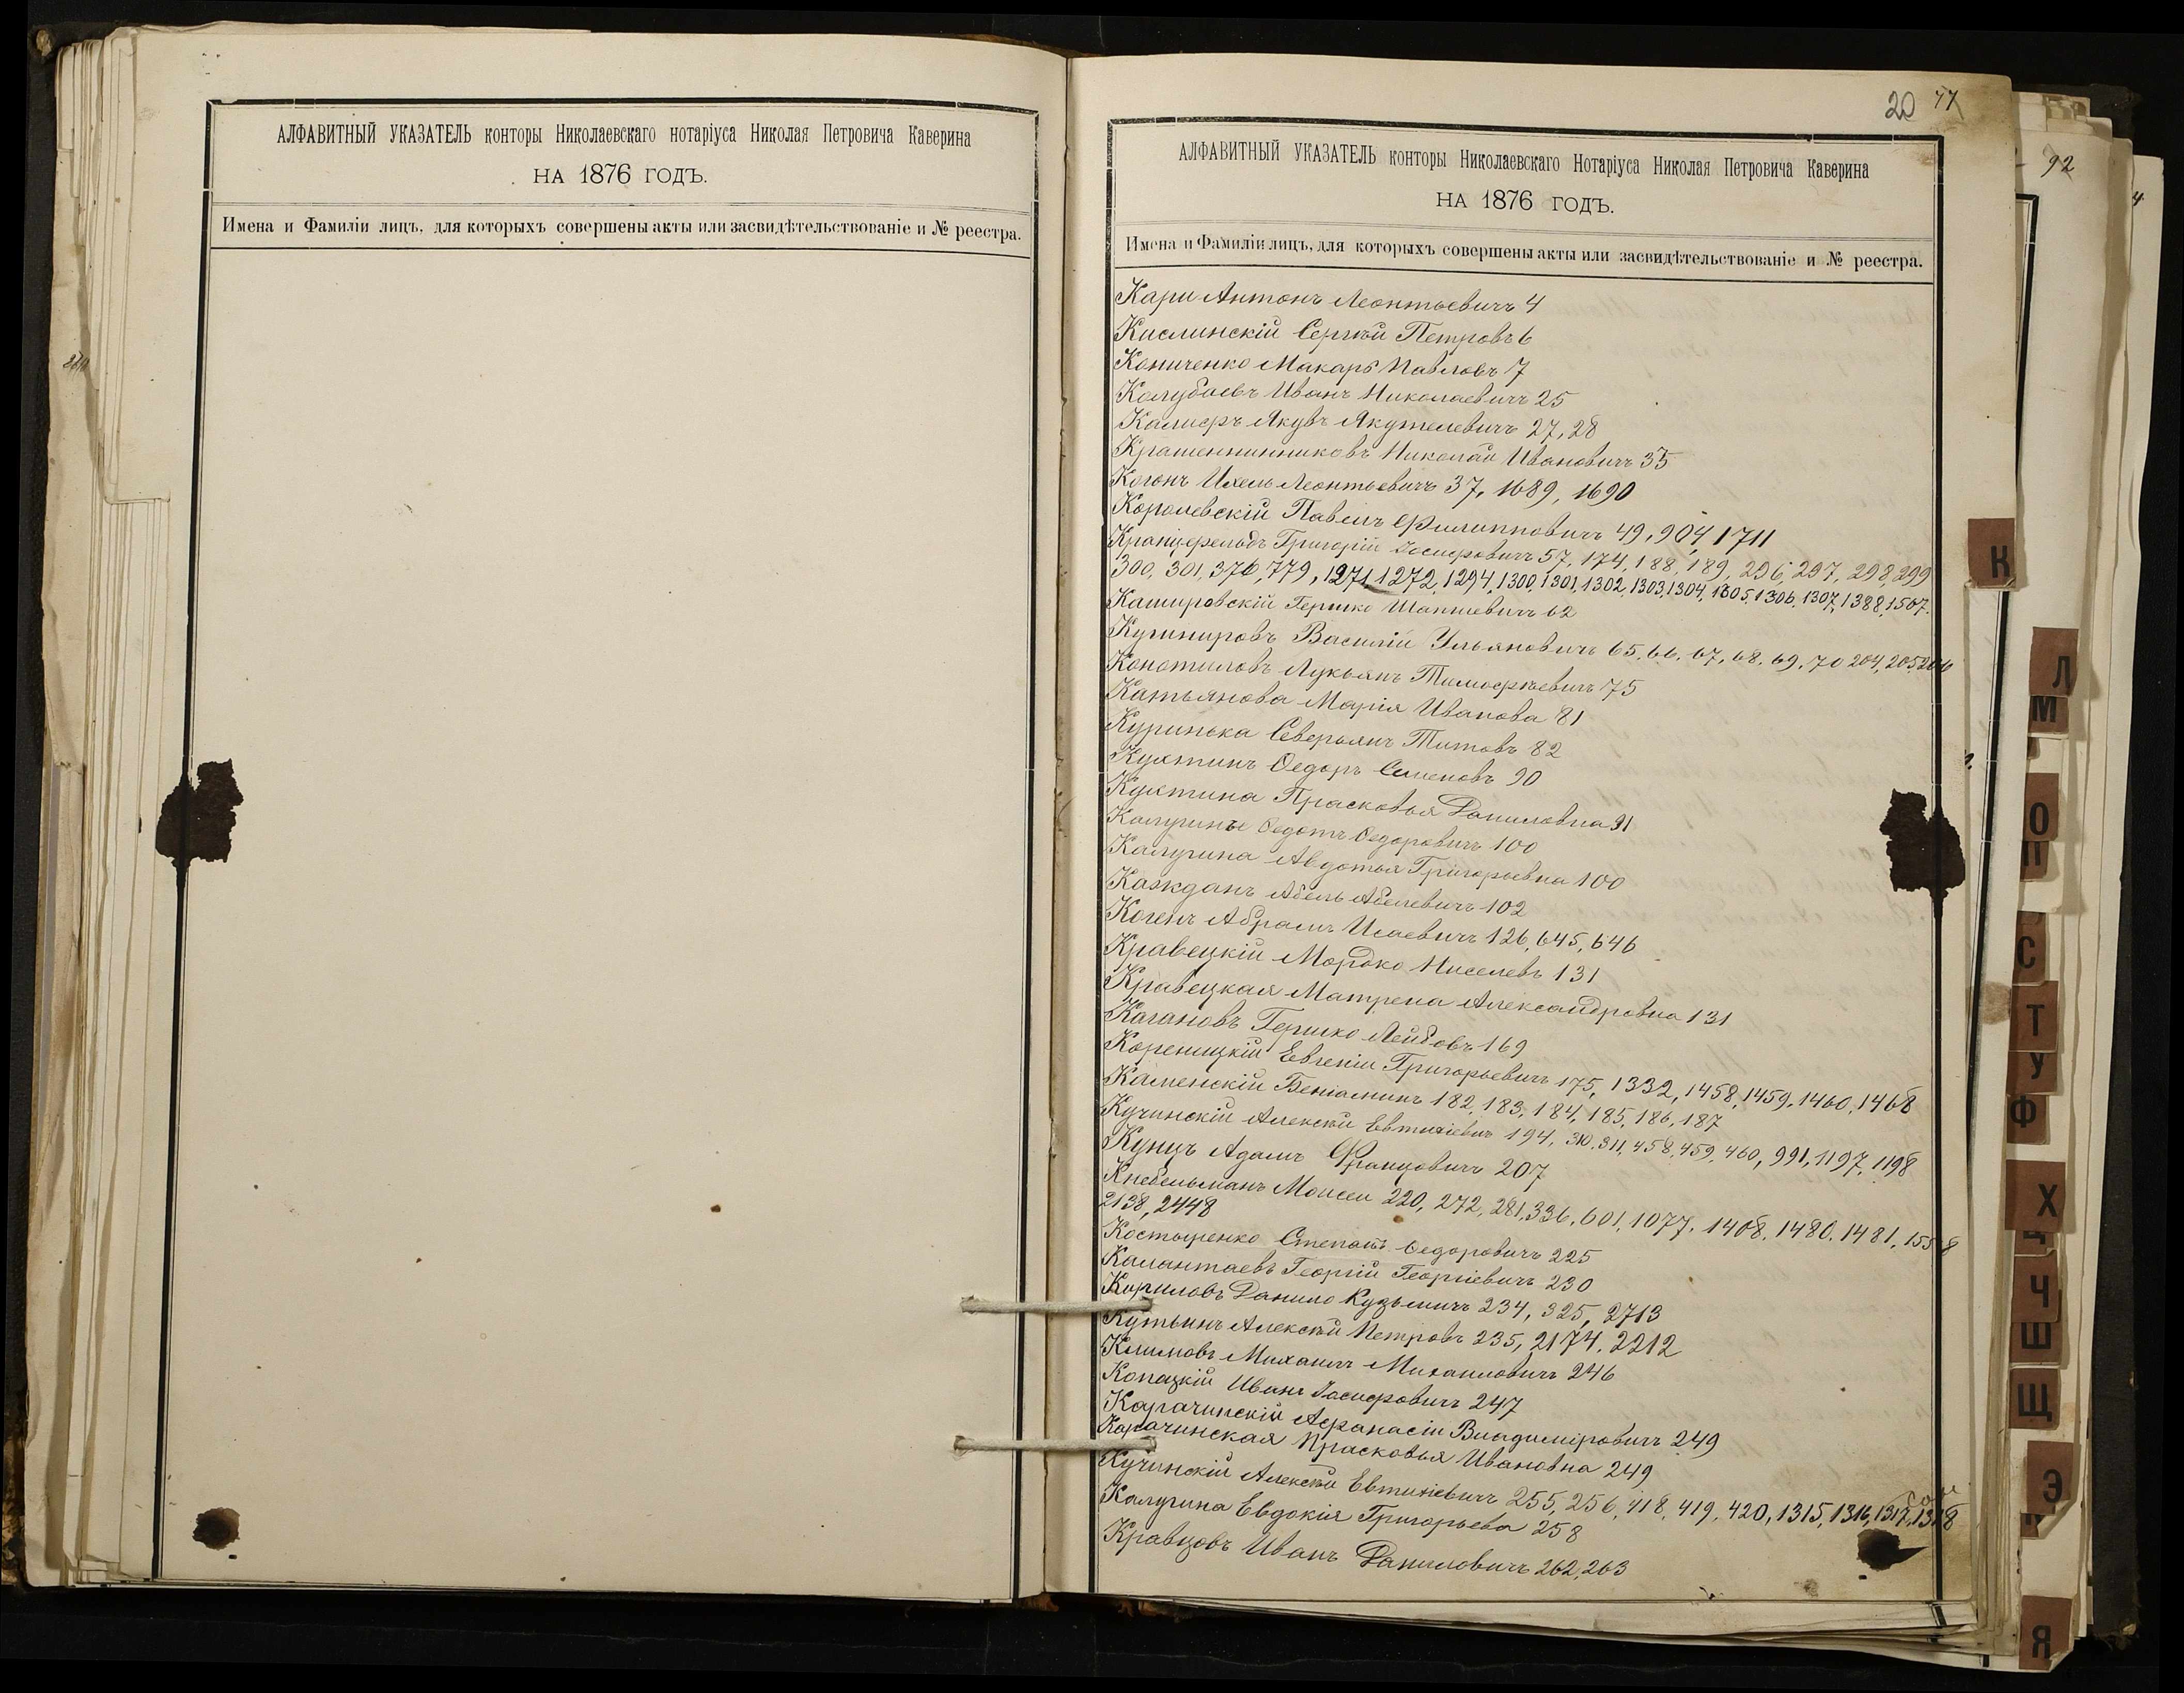 АЛФАВИТНЫЙ УКАЗАТЕЛЬ конторы Николаевскаго нотаріуса Николая Петровича Каверина
НА 1876 ГОДЪ.
Имена и Фамиліи лицъ, для которыхъ совершены акты или засвидѣтельствованіе и № реестра.
20 77
АЛФАВИТНЫЙ УКАЗАТЕЛЬ конторы Николаевскаго Нотаріуса Николая Петровича Каверина
НА 1876 ГОДЪ.
Имена и Фамиліи лицъ, для которыхъ совершены акты или засвидѣтельствованіе и № реестра.
Кари Антонъ Леонтьевичъ 4
Кислинскій Сергѣй Петровъ 6
Кониченко Макаръ Павловъ 7
Калубаевъ Иванъ Николаевичъ 25
Якубъ 27, 28
Крашенинниковъ Николай Ивановичъ 35
Когонъ Ихель Леонтьевичъ 37, 1689, 1690
Королевскій Павелъ Филипповичъ 49, 904, 1711
Кранцфельдъ Григорій Іосифовичъ 57, 174, 188, 189, 296, 297, 298, 299
300, 301, 376, 779, 1271, 1272, 1294, 1300, 1301, 1302, 1303, 1304, 1305, 1306, 1307, 1388, 1567.
Кашировскій Гершко Шапшевичъ 62
Кушнировъ Василій Ульяновичъ 65, 66, 67, 68, 69, 70 204, 205, 206
Конотиловъ Лукьянъ Тимофѣевичъ 75
Катьянова Марія Иванова 81
Куринька Северьянъ Титовъ 82
Кухтинъ Ѳедоръ Семеновъ 90
Кухтина Прасковья Даниловна 91
Калугинъ Ѳедотъ Ѳедоровичъ 100
Калугина Авдотья Григорьевна 100
Кажданъ Абель Абелевичъ 102
Когенъ Абрамъ Исаевичъ 126, 645, 646
Кравецкій Мордко Ниселевъ 131
Кравецкая Матрена Александровна 131
Кагановъ Гершко Лейбовъ 169
Кореницкій Евгеній Григорьевичъ 175, 1332, 1458, 1459, 1460, 1468
Каменскій Беніаминъ 182, 183, 184, 185, 186, 187
Кучинскій Алексѣй Евтихіевичъ 194, 310, 311, 458, 459, 460, 991, 1197, 1198
Кунцъ Адамъ Францовичъ 207
Кнебельманъ Моисей 220, 272, 281, 336, 601, 1077, 1408, 1480, 1481, 1558
2138, 2448
Костыренко Степанъ Ѳедоровичъ 225
Калантаевъ Георгій Георгіевичъ 230
Кириловъ Данило Кузьмичъ 234, 325, 2713
Кутьинъ Алексѣй Петровъ 235, 2174, 2212
Климовъ Михаилъ Михаиловичъ 246
Копацкій Иванъ Іосифовичъ 247
Карачинскій Афанасій Владиміровичъ 249
Карачинская Прасковья Ивановна 249
Кучинскій Алексѣй Евтихіевичъ 255, 256, 418, 419, 420, 1315, 1316, 1317, 1318
Калугина Евдокія Григорьева 258
Кравцовъ Иванъ Даниловичъ 262, 263
92
К
Л
М
О
П
С
Т
У
Ф
Х
Ц
Ч
Ш
Щ
Э
Я